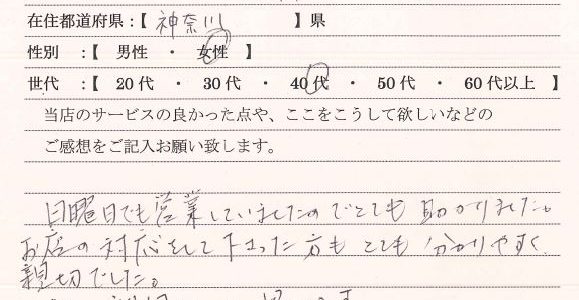 在住都道府県:【 神奈川 】県
性別 :【 男性 ・ 女性 】
世代 :【 20代 ・ 30代 ・ 40代 ・ 50代 ・ 60代以上 】
当店のサービスの良かった点や、ここをこうして欲しいなどの
ご感想をご記入お願い致します。
日曜日でも営業していましたのでとても助かりました。
お店の対応をして下さった方もとても分かりやすく
親切でした。